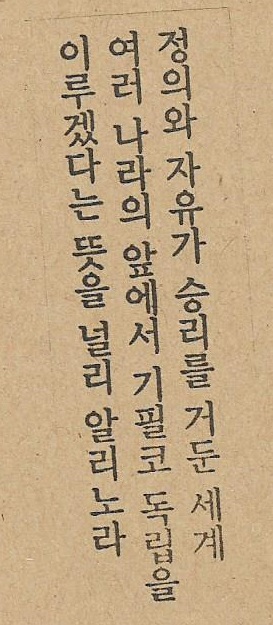 정의와 자유가 승리를 거둔 세계
여러 나라의 앞에서 기필코 독립을
이루겠다는 뜻을 널리 알리노라